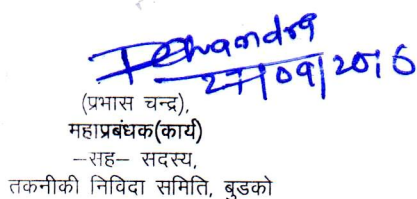 PChandra
27/09/2016
(प्रभास चन्द्र),
महाप्रबंधक(कार्य)
–सह– सदस्य,
तकनीकी निविदा समिति, बुडको